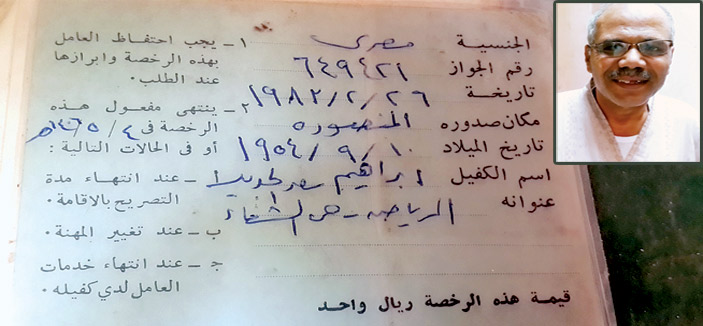 الجنسية مصرى
رقم الجواز ٦٤٩٤٢١
تاريخة ١٩٨٢/٢/٢٦
مكان صدوره المنصوره
تاريخ الميلاد ١٩٥٤/٩/١٠
اسم الكفيل ابراهيم سعد
عنوانه الرياض - حى الشفاء
١ - يجب احتفاظ العامل
بهذه الرخصة وابرازها
عند الطلب.
٢ - ينتهى مفعول هذه
الرخصة فى
أو فى الحالات التالية:
- عند انتهاء مدة
التصريح بالاقامة.
ب - عند تغيير المهنة.
ج - عند انتهاء خدمات
العامل لدي كفيله.
قيمة هذه الرخصة ريال واحد